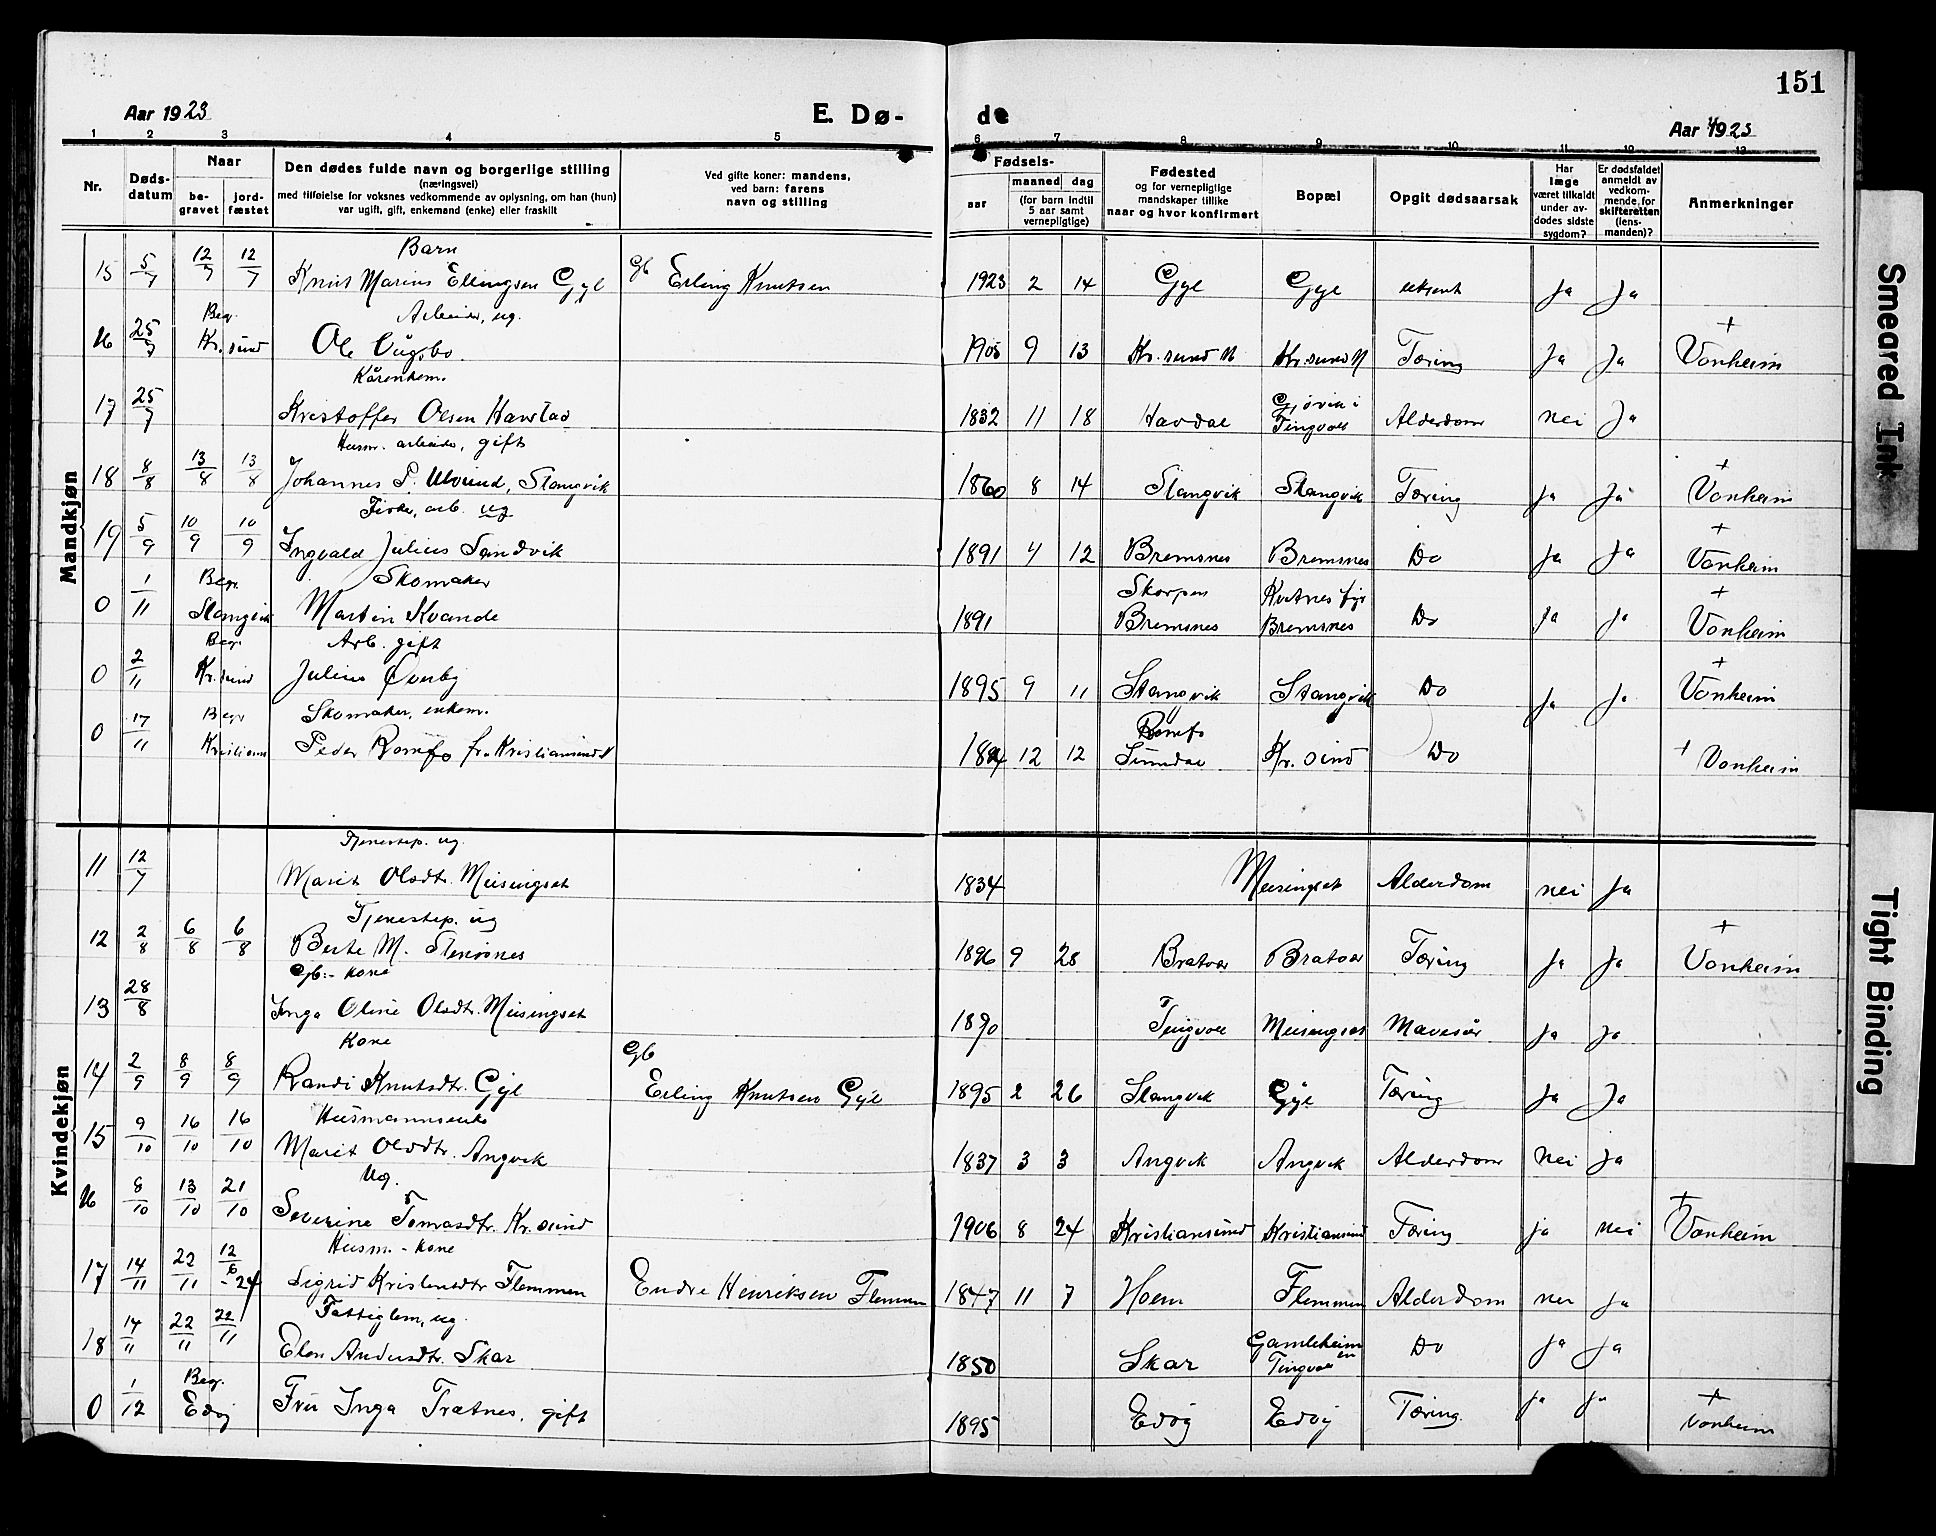 151
Aar 1923 E. Dø- de Aar 1923
1 2 3 4 5 6 7 8 9 10 11 12 13
Nr. Døds-datum Naar be-gravet jord-fæstet Den dødes fulde navn og borgerlige stilling (næringsvei) med tilføielse for voksnes vedkommende av oplysning, om han (hun) var ugift, gift, enkemand (enke) eller fraskilt Ved gifte koner: mandens, ved barn: farens navn og stilling Fødsels- aar maaned dag (for barn indtil 5 aar samt vernepligtige) Fødested og for vernepligtige mandskaper tillike naar og hvor konfirmert Bopæl Opgit dødsaarsak Har læge været tilkaldt under av-dødes sidste sygdom? Er dødsfaldet anmeldt av vedkom-mende, for skifteretten (lens-manden)? Anmerkninger
Mandkjøn
Barn
15 5/7 12/7 12/7 Knut Marius Ellingsen Gyl Gb Erling Knutsen 1923 2 14 Gyl Gyl ukjent Ja Ja
Arbeider, ug.
16 25/7 Begr. Kr.sund Ole Vågsbo 1905 9 13 Kr.sund N Kr.sund N Tæring Ja Ja + Vonheim
Kårenkem.
17 25/7 Kristoffer Olsen Hanstad 1832 11 18 Havdal Gjøvik i Tingvoll Alderdom nei Ja
Husm. arbeider, gift
18 8/8 13/8 13/8 Johannes P. Ulvund, Stangvik 1860 8 14 Stangvik Stangvik Tæring Ja Ja + Vonheim
Fisker, arb. ug
19 5/9 10/9 10/9 Ingvald Julius Sandvik 1891 4 12 Bremsnes Bremsnes Do Ja Ja + Vonheim
Skomaker
0 1/11 Begr. Stangvik Martin Kvande 1891 Skorpen Bremsnes Kvitnes fyr Bremsnes Do Ja Ja + Vonheim
Arb. gift
0 2/11 Begr. Kr.sund Julius Øverby 1895 9 11 Stangvik Stangvik Do Ja Ja + Vonheim
Skomaker, enkem.
0 17/11 Begr Kristiansu Peder Romfo fra Kristiansund N 12 12 Romfo Sundal Kr. sund Do + Vonheim
Kvindekjøn
Tjenestep. ug.
11 12/7 Marit Olsdtr. Meisingset 1834 Meisingset Alderdom nei Ja
Tjenestep. ug
12 2/8 6/8 6/8 Berte M. Stensønes 1896 9 28 Bratvær Bratvær Tæring Ja Ja + Vonheim
Gb.- kone
13 28/8 Inga Oline Olsdtr. Meisingset 1890 Tingvoll Meisingset Mavesår Ja Ja
Kone
14 2/9 8/9 8/9 Randi Knutsdtr. Gyl Gb Erling Knutsen Gyl 1895 2 26 Stangvik Gyl Tæring Ja Ja
Husmannsenke
15 9/10 16/10 16/10 Marit Olsdtr. Angvik 1837 3 3 Angvik Angvik Alderdom Nei Ja
Ug.
16 8/10 13/10 21/10 Severine Tomasdtr. Kr.sund 1906 8 24 Kristiansund Kristiansund Tæring ja nei + Vonheim
Husm.- kone
17 14/11 22/11 12/6 - 24 Sigrid Kristensdtr Flemmen Endre Henriksen Flemmen 1847 11 7 Hoem Flemmen Alderdom nei ja
Fattiglem, ug.
18 14/11 22/11 22/11 Elen Andersdtr. Skar 1850 Skar Gamleheimen Tingvoll Do Ja Ja
0 1/12 Begr. Edøj Fru Inga Trætnes, gift 1895 Edøj Edøj Tæring. Ja Ja + Vonheim
Smeared Ink
Tight Binding